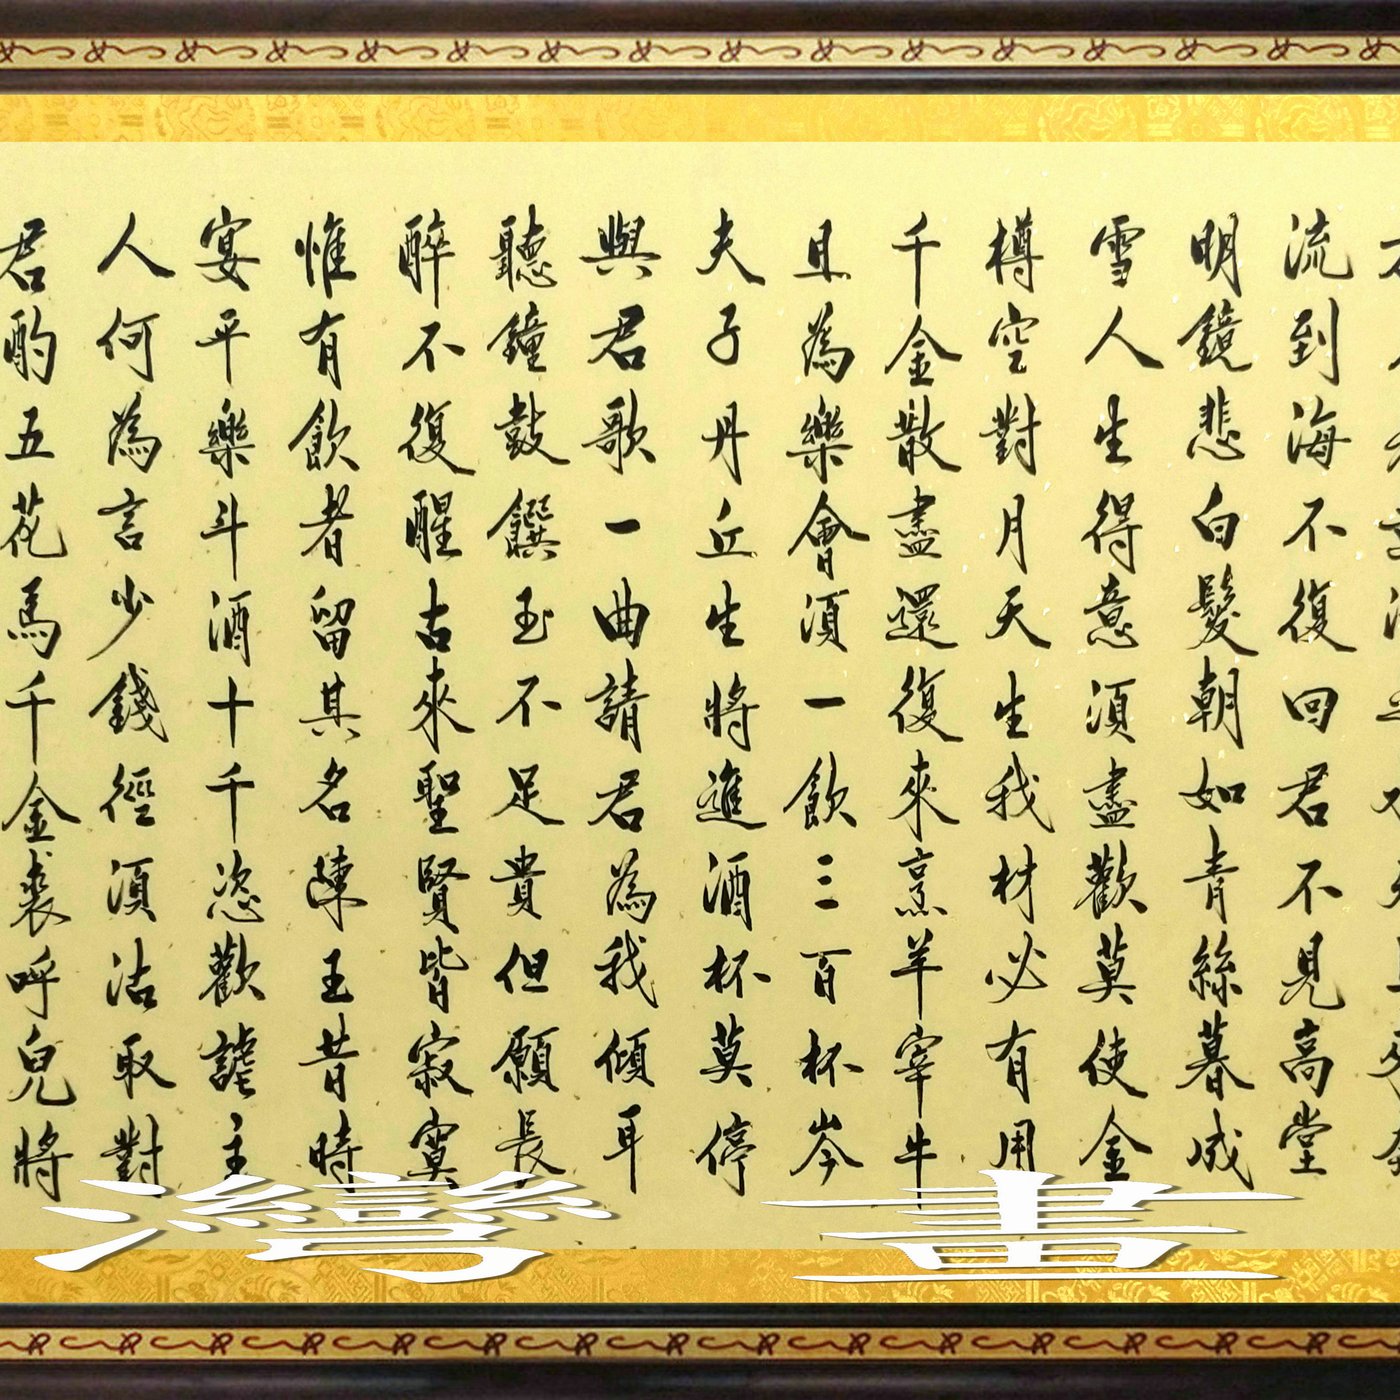 流到海不復回君不見高堂
明鏡悲白髮朝如青絲暮成
雪人生得意須盡歡莫使金
樽空對月天生我材必有用
千金散盡還復來烹羊宰牛
且為樂會須一飲三百杯岑
夫子丹丘生將進酒杯莫停
與君歌一曲請君為我傾耳
聽鐘鼓饌玉不足貴但願長
醉不復醒古來聖賢皆寂寞
惟有飲者留其名陳王昔時
宴平樂斗酒十千恣歡謔主
人何為言少錢徑須沽取對
君酌五花馬千金裘呼兒將
灣 畫